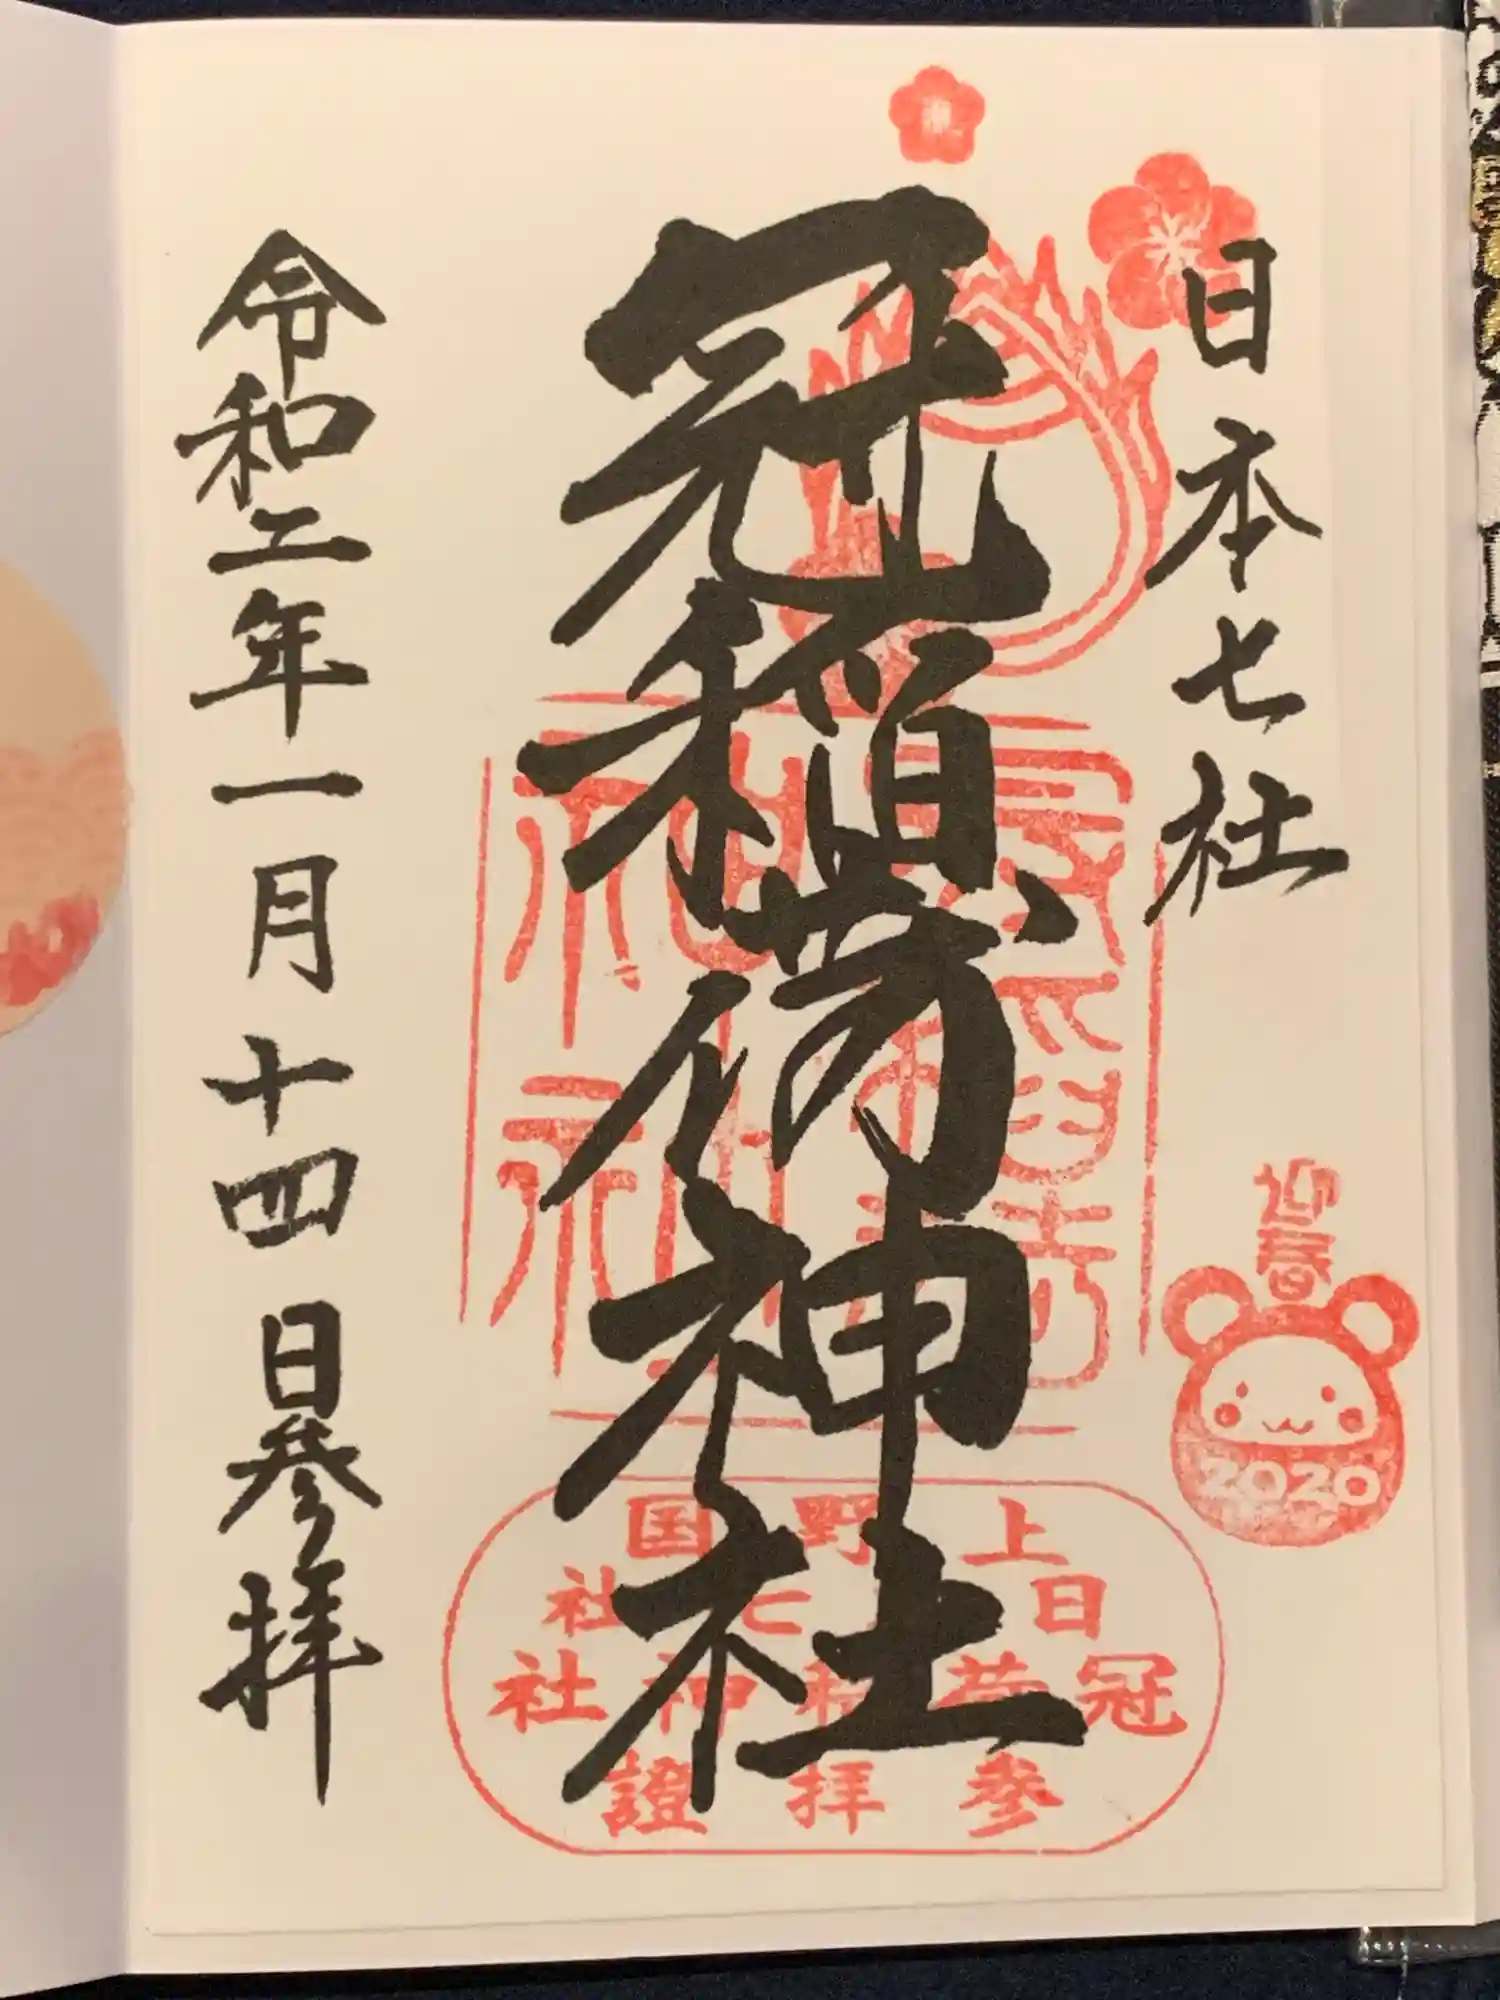 日本七社
冠稲荷神社
令和二年一月十四日参拝
迎春
2020
上野国
日本七社
冠稲荷神社
参拝證